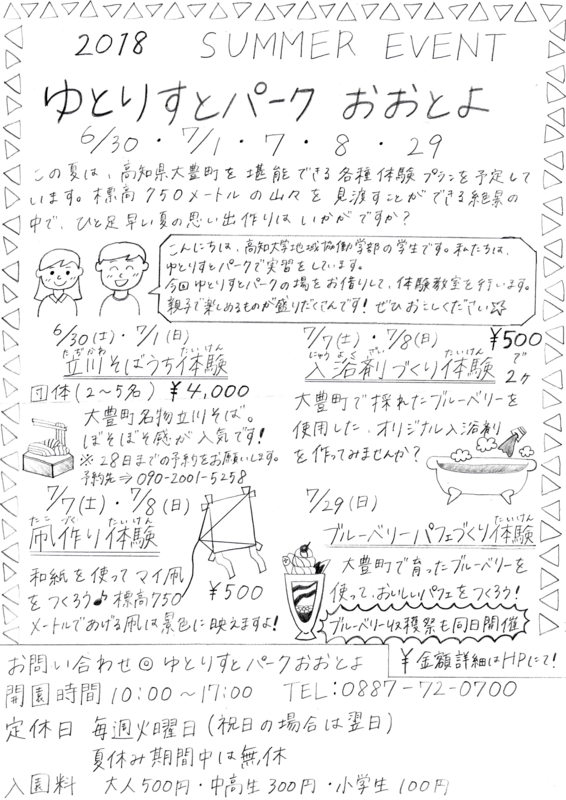 2018 SUMMER EVENT
ゆとりすとパーク おおとよ
6/30・7/1・7・8・29
この夏は、高知県大豊町を堪能できる各種体験プランを予定して
います。標高750メートルの山々を見渡すことができる絶景の
中で、ひと足早い夏の思い出作りはいかがですか?
こんにちは、高知大学地域協働学部の学生です。私たちは、
ゆとりすとパークで実習をしています。
今回ゆとりすとパークの場をお借りして、体験教室を行います。
親子で楽しめるものが盛りだくさんです!ぜひおこしください
6/30(土)・7/1(日)
たぢかわ たいけん
立川そばうち体験
団体(2~5名) ¥4,000
大豊町名物立川そば。
ぼそぼそ感が人気です!
※28日までの予約をお願いします。
予約先⇒090-2001-5258
7/7(土)・7/8(日)
¥500
で
2ヶ
にゅうよくざい たいけん
入浴剤づくり体験
大豊町で採れたブルーベリーを
使用した、オリジナル入浴剤
を作ってみませんか?
7/7(土)・7/8(日)
たこ づく たいけん
凧作り体験
和紙を使ってマイ凧
をつくろう♪標高750
メートルであげる凧は景色に映えますよ!
¥500
7/29(日)
たいけん
ブルーベリーパフェづくり体験
大豊町で育ったブルーベリーを
使って、おいしいパフェをつくろう!
ブルーベリー収穫祭も同日開催
お問い合わせ◎ゆとりすとパークおおとよ
¥金額詳細はHPにて!
開園時間 10:00~17:00 TEL:0887-72-0700
定休日 毎週火曜日(祝日の場合は翌日)
夏休み期間中は無休
入園料 大人500円・中高生300円・小学生100円